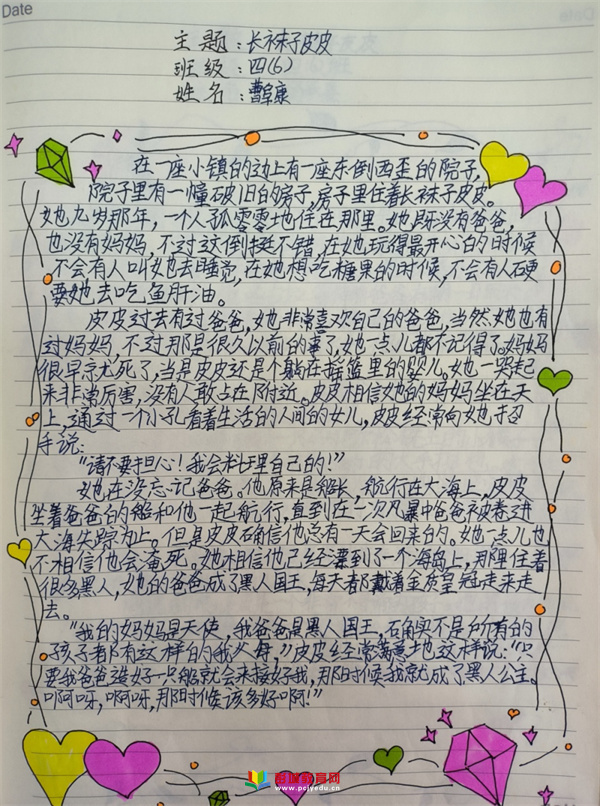 Date
主题:长袜子皮皮
班级:四(6)
姓名:曹阜康
在一座小镇的边上有一座东倒西歪的院子,
院子里有一幢破旧的房子,房子里住着长袜子皮皮。
她九岁那年,一个人孤零零地住在那里。她既没有爸爸,
也没有妈妈,不过这倒挺不错,在她玩得最开心的时候
不会有人叫她去睡觉,在她想吃糖果的时候,不会有人硬
要她去吃鱼肝油。
皮皮过去有过爸爸,她非常喜欢自己的爸爸,当然她也有
过妈妈,不过那是很久以前的事了,她一点儿都不记得了。妈妈
很早就死了,当是皮皮还是个躺在摇篮里的婴儿。她一哭起
来非常厉害,没有人敢占在附近。皮皮相信她的妈妈坐在天
上,通过一个小孔看着生活的人间的女儿,皮皮经常向她招
手说:
"请不要担心!我会料理自己的!"
她在没忘记爸爸。他原来是船长,航行在大海上,皮皮
坐着爸爸的船和他一起航行,直到在一次风暴中爸爸被卷进
大海失踪为止。但是皮皮确信他总有一天会回来的。她一点儿也
不相信他会淹死。她相信他已经漂到了一个海岛上,那里住着
很多黑人,她的爸爸成了黑人国王,每天都戴着金质皇冠走来走
去。
"我的妈妈是天使,我爸爸是黑人国王,确实不是所有的
孩子都有这样的我父母,"皮皮经常满意地这样说:"只
要我爸爸造好一只船就会来接好我,那时候我就成了黑人公主。
啊呀,啊呀,那时候该多好啊!"
www.pcjyedu.cn